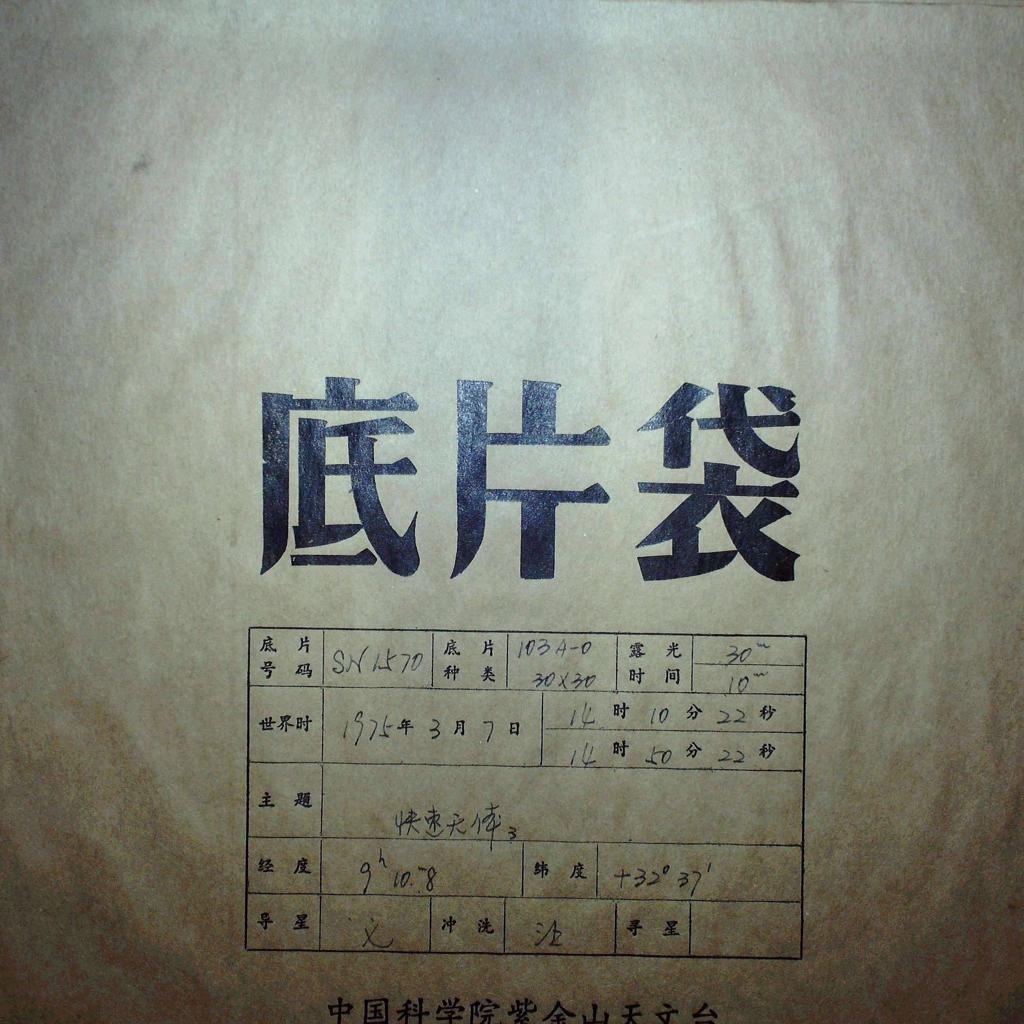 底片袋
底片号码 SN1570 底片种类 103A-O 30×30 露光时间 30ᵐ 10ᵐ
世界时 1975年3月7日 14时10分22秒
14时50分22秒
主题 快速天体3
经度 9ʰ10.ᵐ8 纬度 +32°37′
导星 冲洗 寻星
中国科学院紫金山天文台